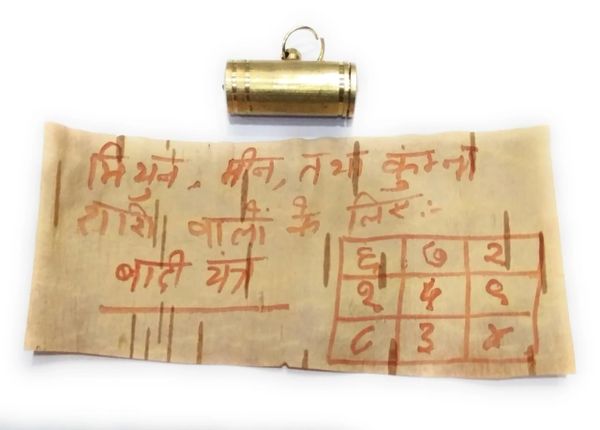 मिथुन, मीन, तथा कुंम्भ
राशि वालों के लिए:-
बादी यंत्र
६ ७ २
१ ५ ९
८ ३ ४